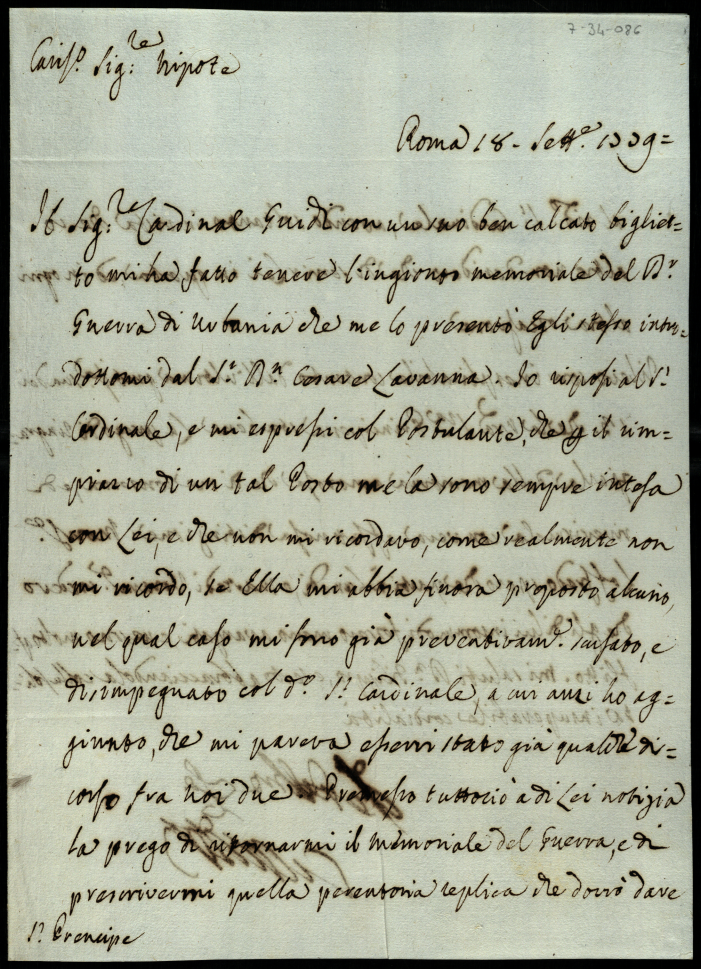 7-34-086
Cariss.º Sig:re Nipote
Roma 18 - Sett.e 1779=
Il Sig:re Cardinal Guidi con un suo ben calcato bigliet=
to mi ha fatto tenere l'ingionto memoriale del Dr
Guerra di Urbania che me lo presentò Egli stesso intro=
dottomi dal Sr Dn Cesare Cavanna. Io risposi al Sr
Cardinale, e mi espressi col Postulante, che p il rim=
piazzo di un tal Posto me la sono sempre intesa
con Lei, e che non mi ricordavo, come realmente non
mi ricordo, se Ella mi abbia finora proposto alcuno,
nel qual caso mi sono già preventivam.e scusato, e
disimpegnato col do Sr Cardinale, a cui anzi ho ag=
giunto, che mi pareva esservi stato già qualche di=
corso fra noi due. Premesso tuttociò a di Lei notizia
la prego di ritornarmi il Memoriale del Guerra, e di
prescrivermi quella perentoria replica che dovrò dare
Sr Prencipe